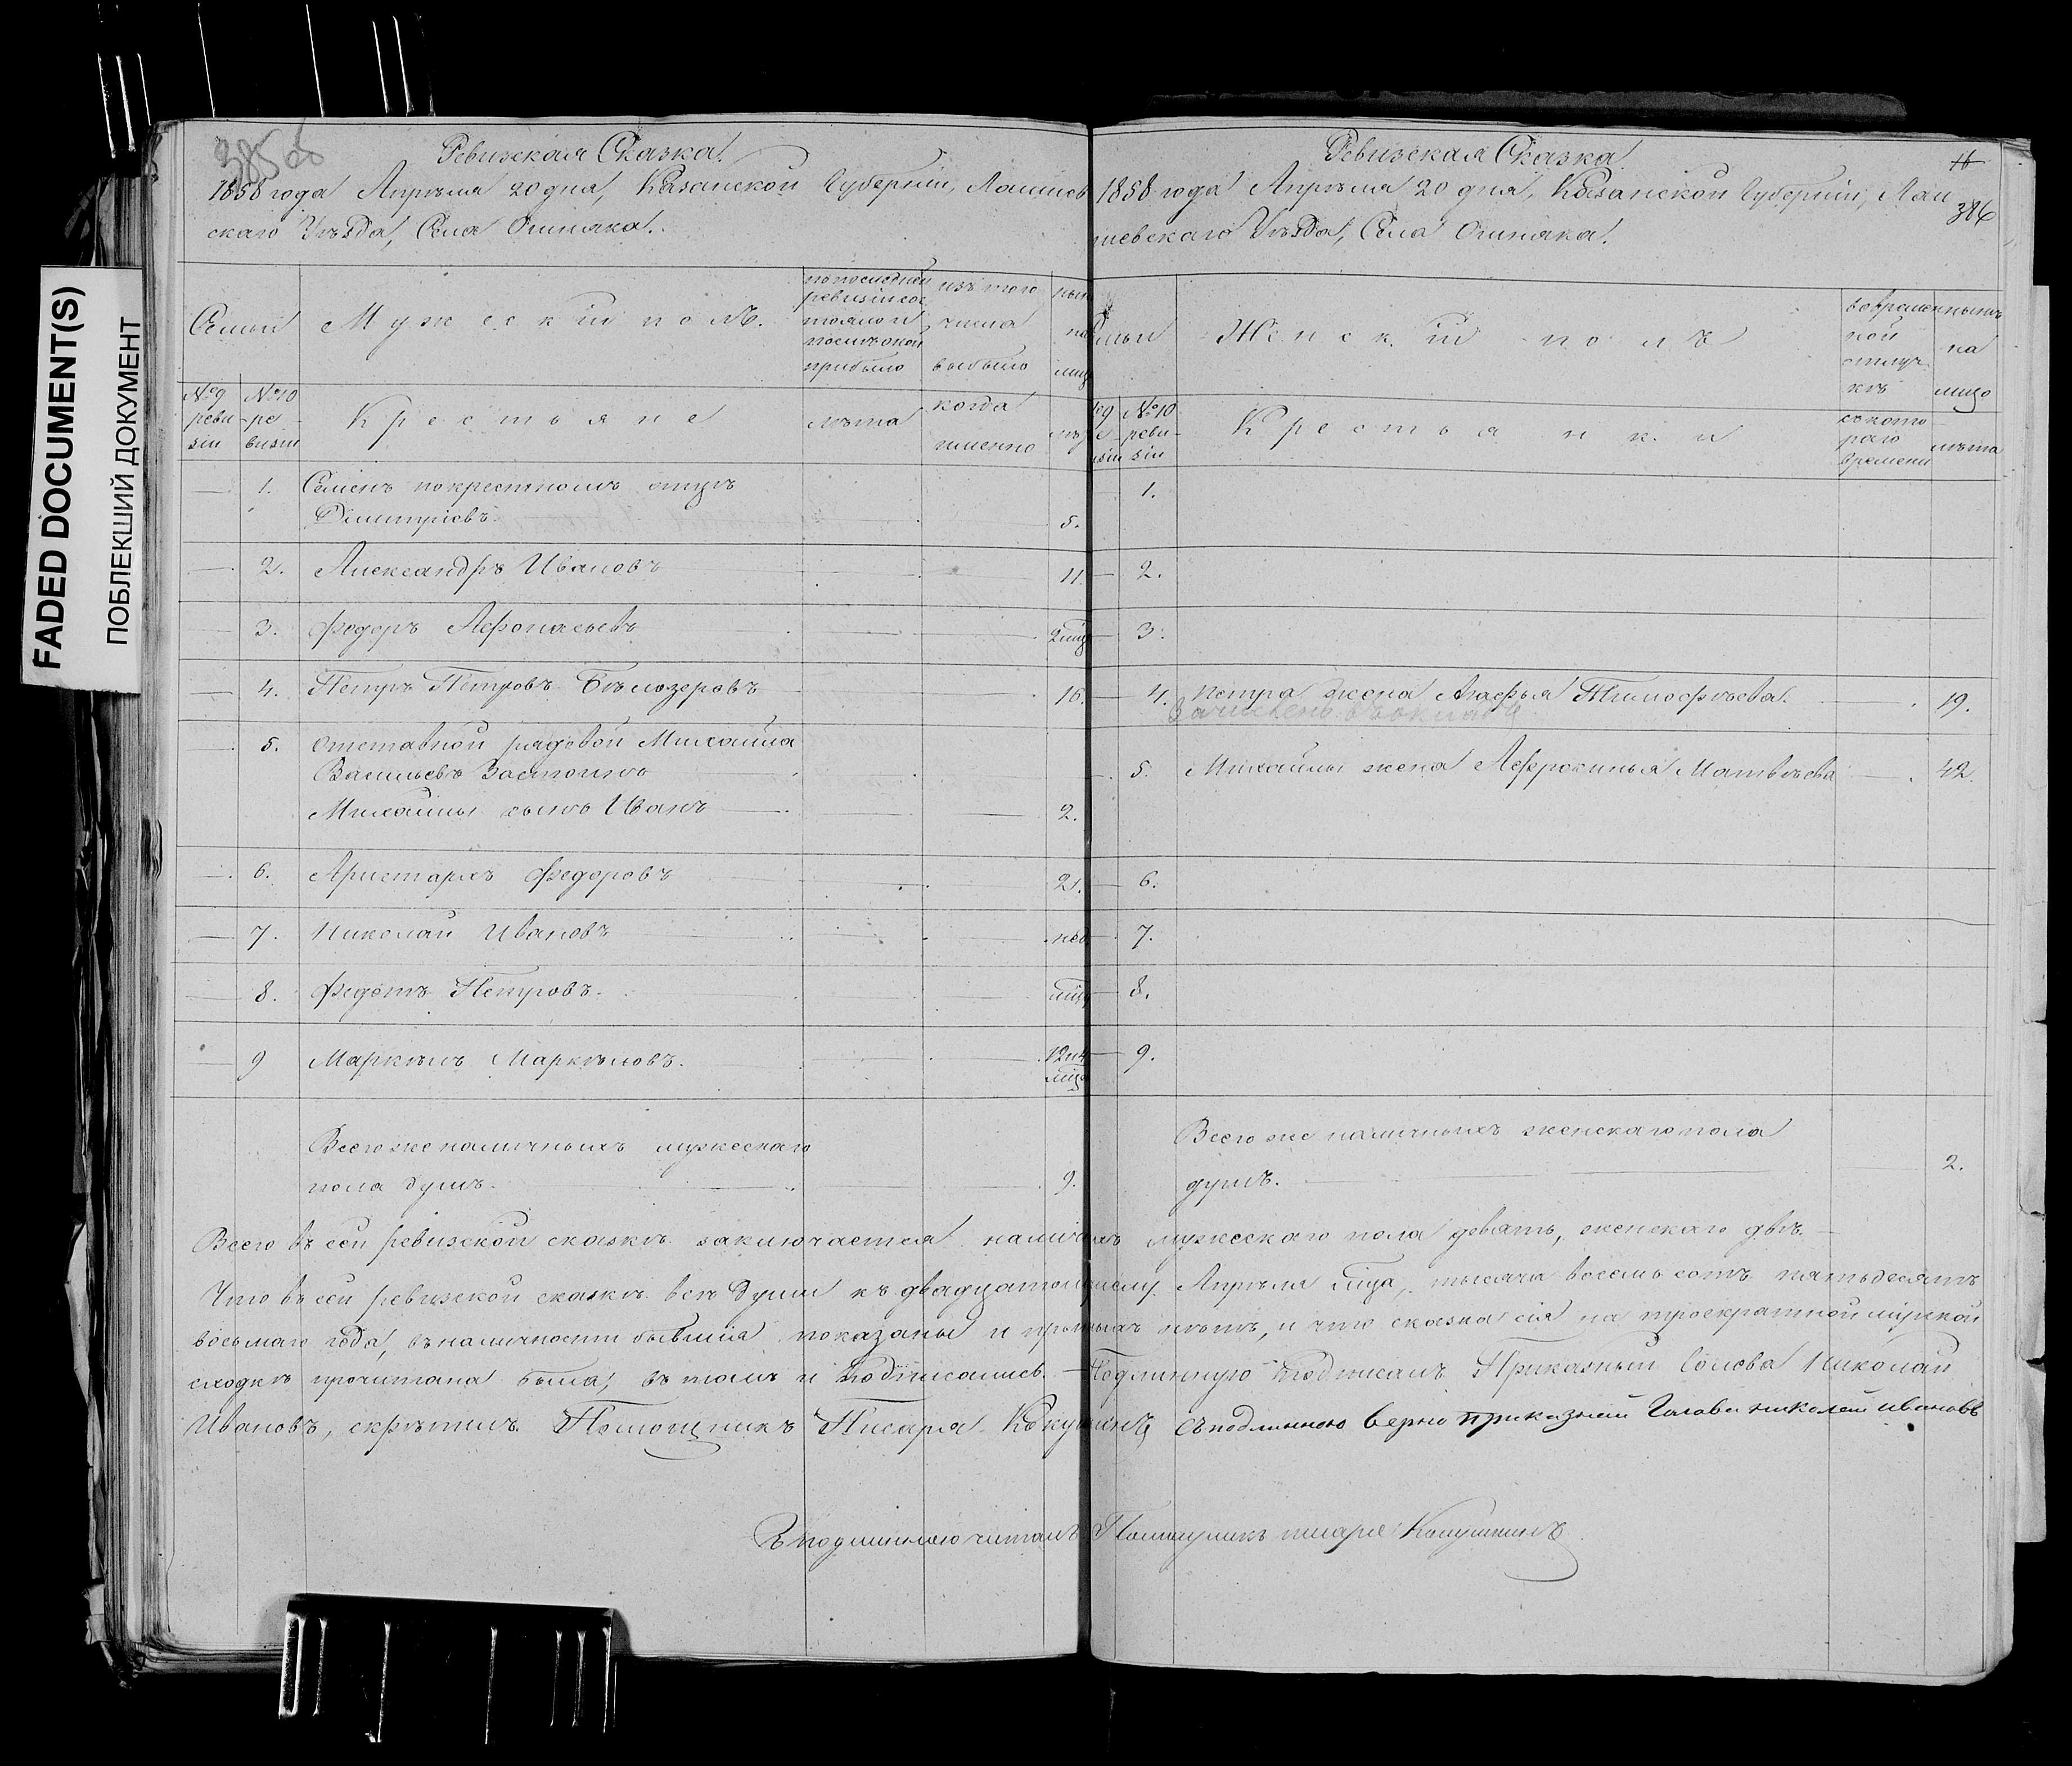 FADED DOCUMENT(S)
ПОБЛЕКШИЙ ДОКУМЕНТ
385 об
Ревизская Сказка.
1858 года Апрѣля 20 дня, Казанской Губерніи, Лаишев
скаго Уѣзда, Села Ошняка.
Семьи
Мужескій полъ.
по последней
ревизіи сос
тояло и
после оной
прибыло
изъ того
числа
выбыло
ныне
на
лиц
№ 9
реви
зіи
№ 10
ре
визіи
Крестьяне
лѣта
когда
именно
лѣт
1. Семенъ по крестномъ отцѣ
Димитріевъ. 5.
2. Александръ Ивановъ 11
3. Федоръ Афонасьевъ 2 мц
4. Петръ Петровъ Бѣлозеровъ 16.
5. Отставной рядовой Михайла
Васильевъ
Михайлы сынъ Иванъ 2.
6. Аристархъ Федоровъ 21.
7. Николай Ивановъ нед
8. Федотъ Петровъ. мц
9 Маркѣлъ Маркѣловъ. 12 и 4
мца
Всего же наличныхъ мужескаго
пола душъ. 9.
Ревизская Сказка
11
1858 года Апрѣля 20 дня, Казанской Губерніи, Лаи
386
шевскаго Уѣзда, Села Ошняка.
Семьи
Женскій полъ
во времен
ной
отлуч
кѣ
ныне
на
лицо
№ 9
№ 10
реви
зіи
Крестьянки
съ кото
раго
времени
лѣта
1.
2.
3.
4. Петра жена Агафья Тимофѣева. 19.
5. Михайлы жена Афросинья Матвѣева 42.
6.
7.
8.
9.
Всего же наличныхъ женскаго пола
душъ. 2.
Всего въ сей ревизской сказкѣ заключается наличныхъ мужескаго пола девять, женскаго двѣ.
Что въ сей ревизской сказкѣ все души къ двадцатому числу Апрѣля мца, тысяча восемь сотъ пятьдесятъ
восьмаго года, въ наличности бывшія показаны и прописныхъ нѣтъ, и что сказка сія на троекратной мірской
сходкѣ прочитана была, въ томъ и подписались. Подлинную подписалъ Приказный Голова Николай
Ивановъ, скрѣпилъ Помощникъ Писаря Кокушкинъ Съ подлинною верно приказный Голова николай ивановъ
Съ подлинною читалъ Помощникъ писаря Кокушкинъ